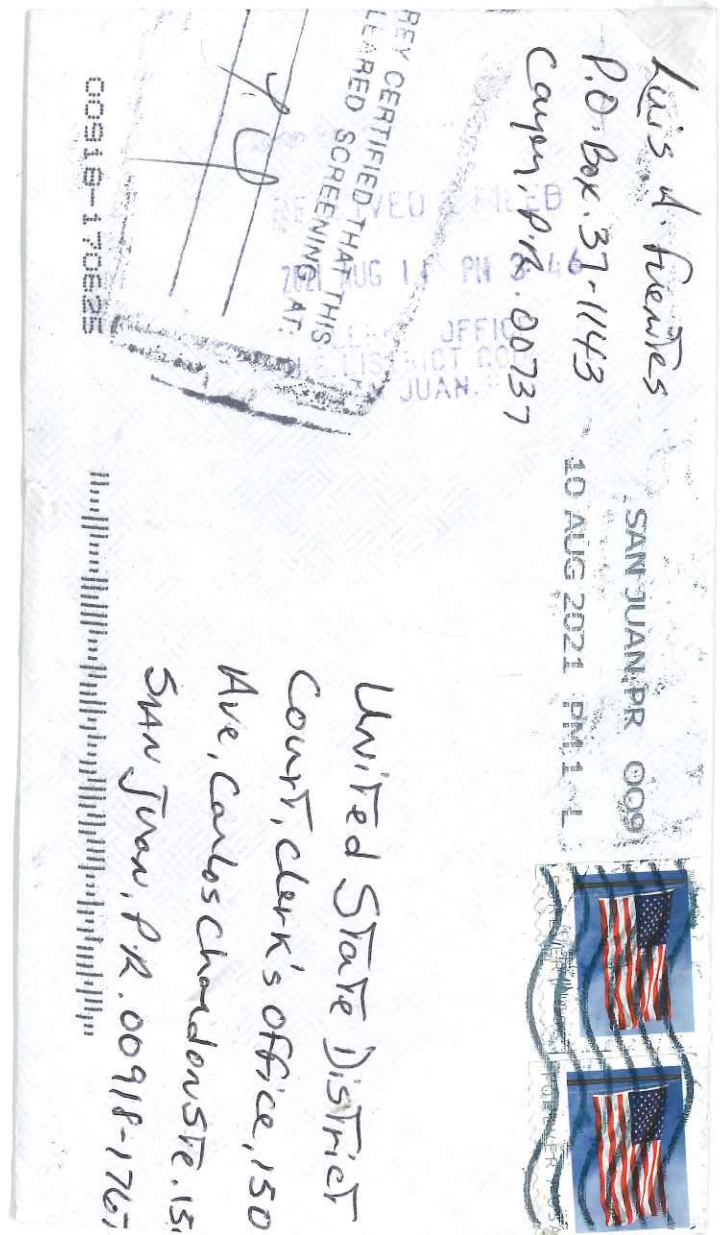 Luis A. Fuentes
P.O. Box. 37-1143
Cayey, P.R. 00737
SAN JUAN PR 009
10 AUG 2021 PM 1 L
RECEIVED & FILED
2021 AUG PM 3:46
CLERK'S OFFICE
U.S. DISTRICT COURT
SAN JUAN, P
REY CERTIFIED THAT THIS
LEARED SCREENING AT:
United State District
Court, Clerk's office, 150
Ave, Carlos Chardon Ste. 15
SAN JUAN, P.R. 00918-176
00918-170625
FOREVER USA